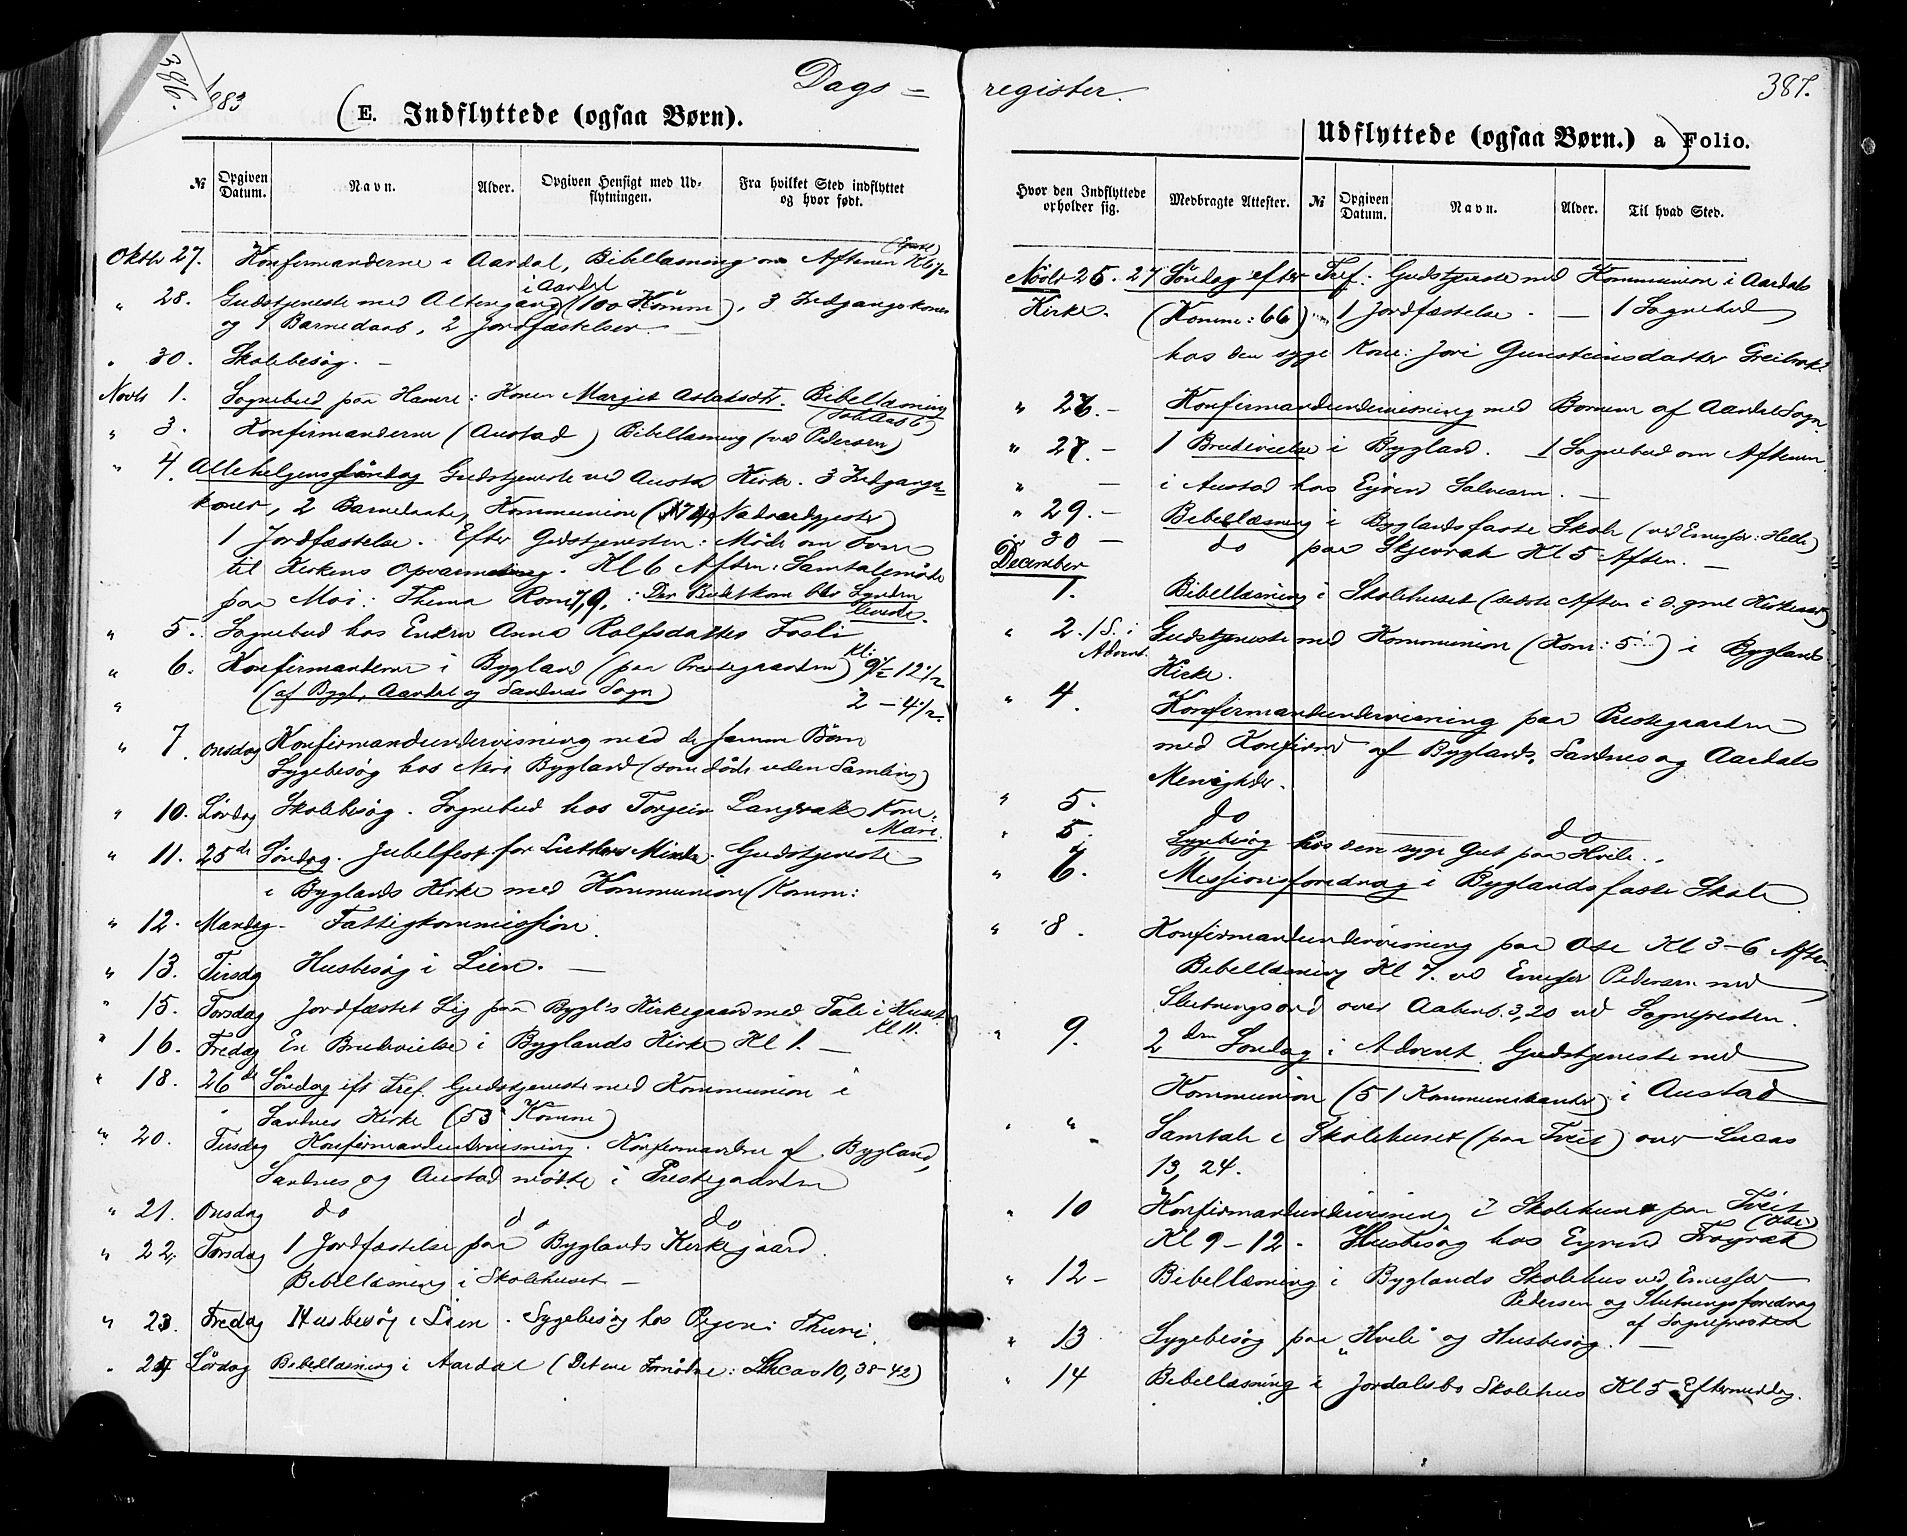 386.
1883
Dags =
(E. Indflyttede (ogsaa Børn).
№ Opgiven Datum. Navn. Alder. Opgiven Hensigt med Udflytningen. Fra hvilket Sted indflyttet og hvor født.
Oktbr 27. Konfirmanderne i Aardal, Bibellæsning om Aftenen Kl 6½
" 28. Gudstjeneste med Altergang i Aardal (100 Komm), 3 Indgangskoner
og 1 Barnedaab, 2 Jordfæstelser —
" 30. Skolebesøg. —
Novbr 1. Sognebud paa Hamre: Konen Margit Aslaksdtr. Bibellæsning
" 3. Konfirmanderne (Austad) Bibellæsning (ved Pedersen)
" 4. Allehelgenssøndag Gudstjeneste ved Austad Kirke. 3 Indgangs-
koner, 2 Barnedaab, Kommunion (74 Nadverdgjester)
1 Jordfæstelse. Efter Gudstjenesten: Møde om Ovn
til Kirkens Opvarmning. Kl 6 Aften: Samtalemøde
paa Moi: Thema Rom 7,9.: Der Budet kom blev Synden
levende.
" 5. Sognebud hos Enken Anna Rolfsdatter Fosli
" 6. Konfirmanderne i Bygland (paa Prestegaarden) Kl: 9½ 12½
" (af Bygl, Aardal og Sandnes Sogn) 2 – 4½.
" 7. Onsdag Konfirmandundervisning med de samme Børn
Sygebesøg hos Neri Bygland (som døde uden Samling)
" 10. Lørdag Skolebesøg. Sognebud hos Torgeir Langeraks Kone:
Mari.
" 11. 25de Søndag. Jubelfest for Luthers Minde. Gudstjeneste
i Byglands Kirke med Kommunion (Komm:
" 12. Mandag. Fattigkommission.
" 13. Tirsdag Husbesøg i Lien. —
" 15. Torsdag Jordfæstet Lig paa Bygl's Kirkegaard med Tale i Huset
Kl 11.
" 16. Fredag En Brudevielse i Byglands Kirke Kl 1. —
" 18. 26de Søndag eft Tref. Gudstjeneste med Kommunion i
Sandnes Kirke (53 Komm)
" 20. Tirsdag Konfirmandundervisning. Konfirmander af Bygland,
Sandnes og Austad mødte i Prestegaarden
" 21. Onsdag do do do
" 22. Torsdag 1 Jordfæstelse paa Byglands Kirkegaard.
Bibellæsning i Skolehuset —
" 23. Fredag Husbesøg i Lien. Sygebesøg hos Pigen: Thuni.
" 24 Lørdag Bibellæsning i Aardal (Det ene Fornødne: Lucas 10, 38–42)
register.
387.
Udflyttede (ogsaa Børn.) a) Folio.
Hvor den Indflyttede opholder sig. Medbragte Attester. № Opgiven Datum. Navn. Alder. Til hvad Sted.
Novbr 25. 27 Søndag efter Tref: Gudstjeneste med Kommunion i Aardals
Kirke. (Komm: 66) 1 Jordfæstelse. — 1 Sognebud
hos den syge Kone: Jori Gunsteinsdatter
" 26. – Konfirmandundervisning med Børnene af Aardal Sogn.
" 27. – 1 Brudevielse i Bygland. 1 Sognebud om Aftenen
" – i Austad hos Eyvind Salvesen. —
" 29. – Bibellæsning i Byglands faste Skole (ved Emissær: Helle)
" 30 – do paa Skjevrak Kl 5 Aften. —
December
1. Bibellæsning i Skolehuset
" 2. 1 S. i Advent. Gudstjeneste med Kommunion (Kom: 5) i Byglands
Kirke.
" 4. Konfirmandundervisning paa Prestegaarden
med Konfirmd af Byglands, Sandnes og Aardals
Menigheder.
" 5. do do
" 5. Sygebesøg hos den syge Gut paa Hvile.
" 6. Missionsforedrag i Byglands faste Skole
" 8. Konfirmandundervisning paa Ose Kl 3–6 Aften.
Bibellæsning Kl 7. ved Emissær Pedersen med
Slutningsord over Aabenb. 3,20 ved Sognepresten.
" 9. 2den Søndag i Advent. Gudstjeneste med
Kommunion (51 Kommunikanter) i Austad
" " Samtale i Skolehuset (paa Tveit) over Lucas
13, 24.
" 10 Konfirmandundervisning i Skolehuset paa Tveit
(Ose)
Kl 9 – 12. Husbesøg hos Eyvind Frøyrak
" 12 – Bibellæsning i Byglands Skolehus ved Emissær
Pedersen og Slutningsforedrag
af Sognepresten
" 13 Sygebesøg paa "Hvile" og Husbesøg. —
" 14 Bibellæsning i Jordalsbø Skolehus Kl 5 Eftermiddag.